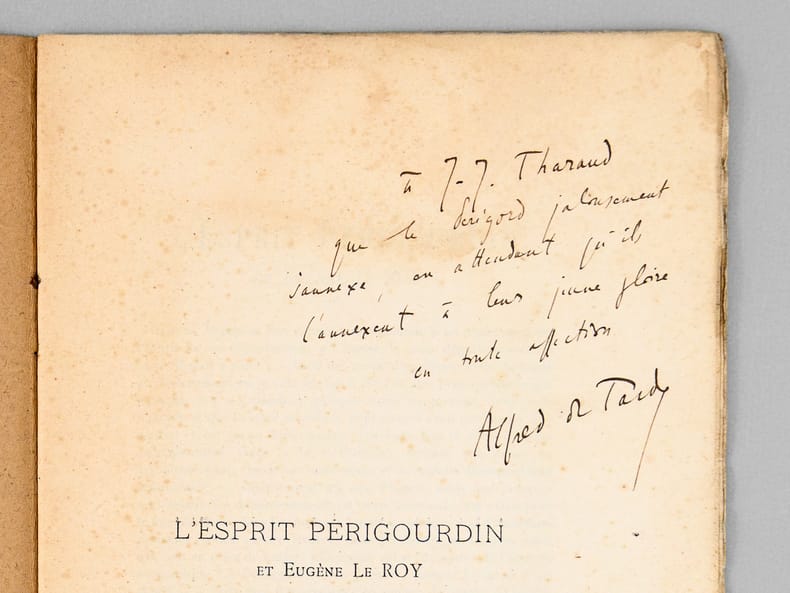 à J.-J. Tharaud
que le Périgord jalousement
s'annexe, en attendant qu'ils
l'annexent à leur jeune gloire
en toute affection
Alfred de Tarde
L'ESPRIT PÉRIGOURDIN
ET EUGÈNE LE ROY